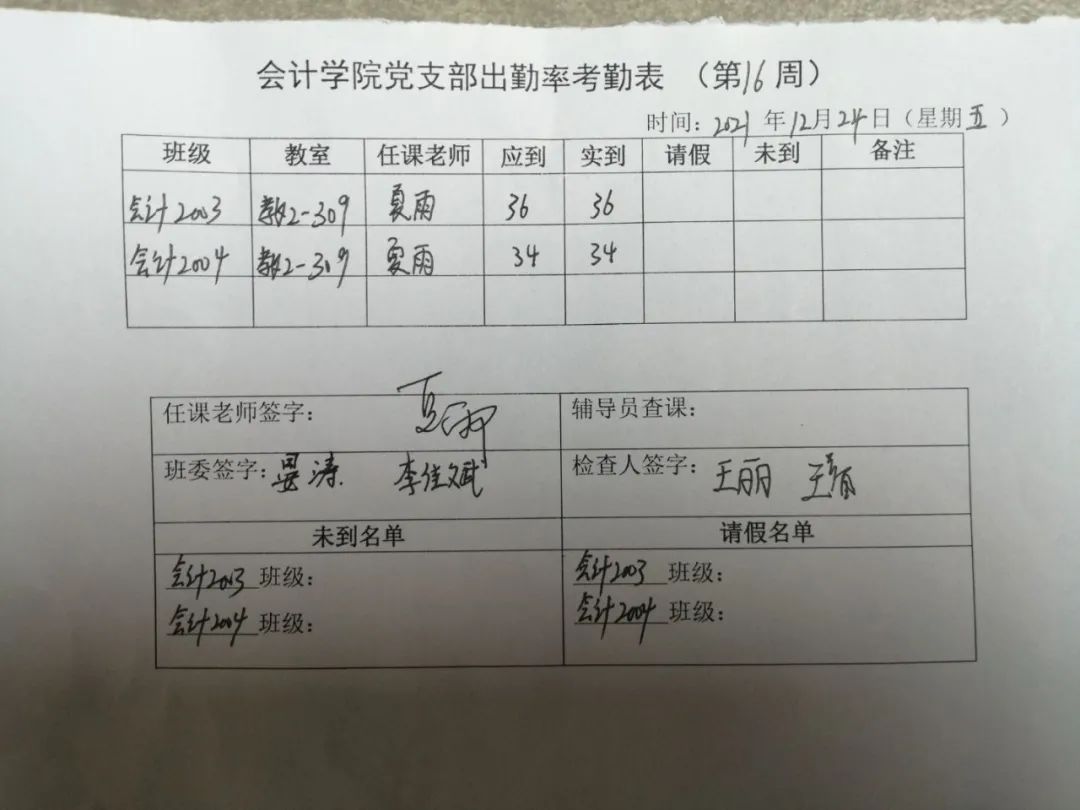 会计学院党支部出勤率考勤表 （第16周）
时间：2021年12月24日（星期五）
班级 教室 任课老师 应到 实到 请假 未到 备注
会计2003 教2-309 夏雨 36 36
会计2004 教2-309 夏雨 34 34
任课老师签字： 夏雨 辅导员查课：
班委签字：晏涛 李佳斌 检查人签字：王丽 王靖
未到名单 请假名单
会计2003班级： 会计2003班级：
会计2004班级： 会计2004班级：